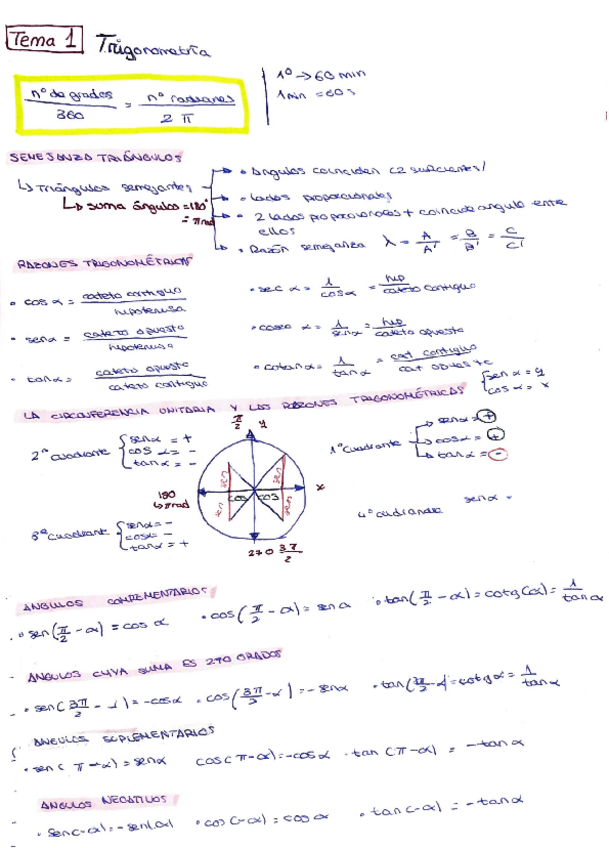 Tema 1 Trigonometría
nº de grados / 360 = nº radianes / 2 π
1º → 60 min
1 min = 60 s
SEMEJANZA TRIÁNGULOS
↳ Triángulos semejantes
↳ suma ángulos = 180° = π rad
→ • Ángulos coinciden (2 suficientes)
→ • Lados proporcionales
→ • 2 lados proporcionales + coincide angulo entre
ellos
→ • Razón semejanza λ = A/A' = B/B' = C/C'
RAZONES TRIGONOMÉTRICAS
• cos α = cateto contiguo / hipotenusa
• sec α = 1/cos α = hip / cateto contiguo
• sen α = cateto opuesto / hipotenusa
• cosec α = 1/sen α = hip / cateto opuesto
• tan α = cateto opuesto / cateto contiguo
• cotan α = 1/tan α = cat contiguo / cat opuesto
LA CIRCUNFERENCIA UNITARIA Y LAS RAZONES TRIGONOMÉTRICAS { sen α = y
cos α = x
2º cuadrante { sen α = +
cos α = −
tan α = −
π/2 y
1º cuadrante → sen α = +
→ cos α = +
→ tan α = −
180
↳ π rad
sen cos cos sen
sen sen
x
3º cuadrante { sen α = −
cos α = −
tan α = +
270 3π/2
4º cuadrante sen α =
ÁNGULOS COMPLEMENTARIOS
• sen(π/2 − α) = cos α • cos(π/2 − α) = sen α • tan(π/2 − α) = cotg(α) = 1/tan α
ÁNGULOS CUYA SUMA ES 270 GRADOS
• sen(3π/2 − α) = −cos α • cos(3π/2 − α) = −sen α • tan(3π/2 − α) = cotg α = 1/tan α
ÁNGULOS SUPLEMENTARIOS
• sen(π − α) = sen α cos(π − α) = −cos α • tan(π − α) = −tan α
ÁNGULOS NEGATIVOS
• sen(−α) = −sen(α) • cos(−α) = cos α • tan(−α) = −tan α